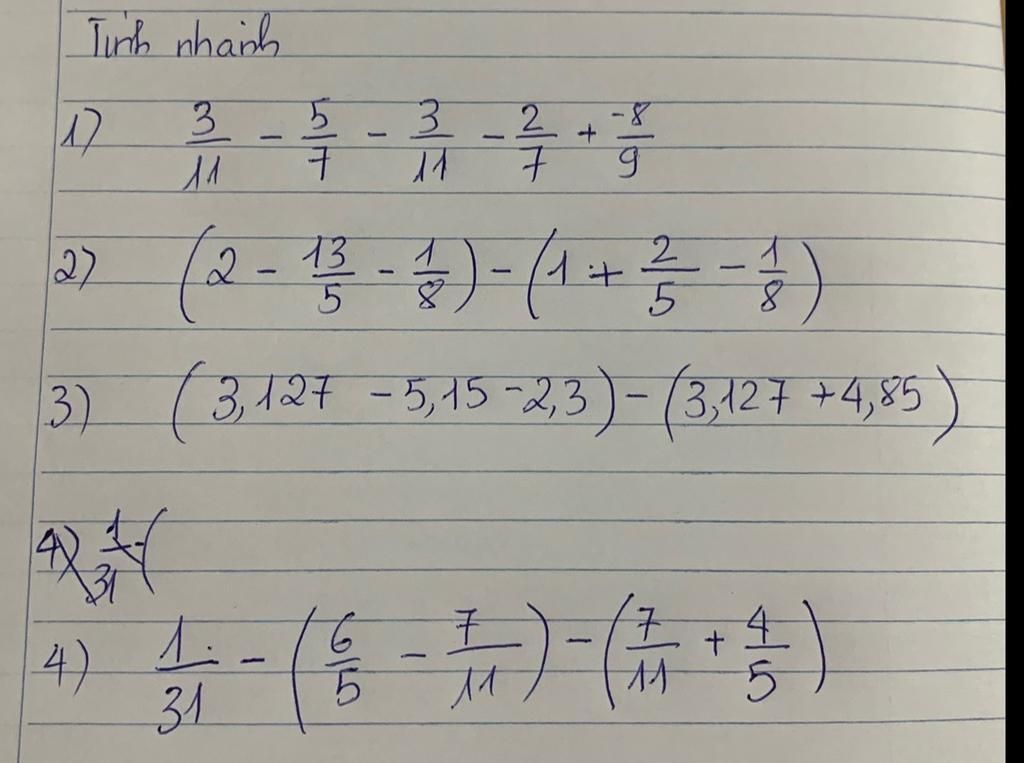 Tính nhanh
1) 3/11 - 5/7 - 3/11 - 2/7 + -8/9
2) (2 - 13/5 - 1/8) - (1 + 2/5 - 1/8)
3) (3,127 - 5,15 - 2,3) - (3,127 + 4,85)
4) 1/31 - (
4) 1/31 - (6/5 - 7/11) - (7/11 + 4/5)